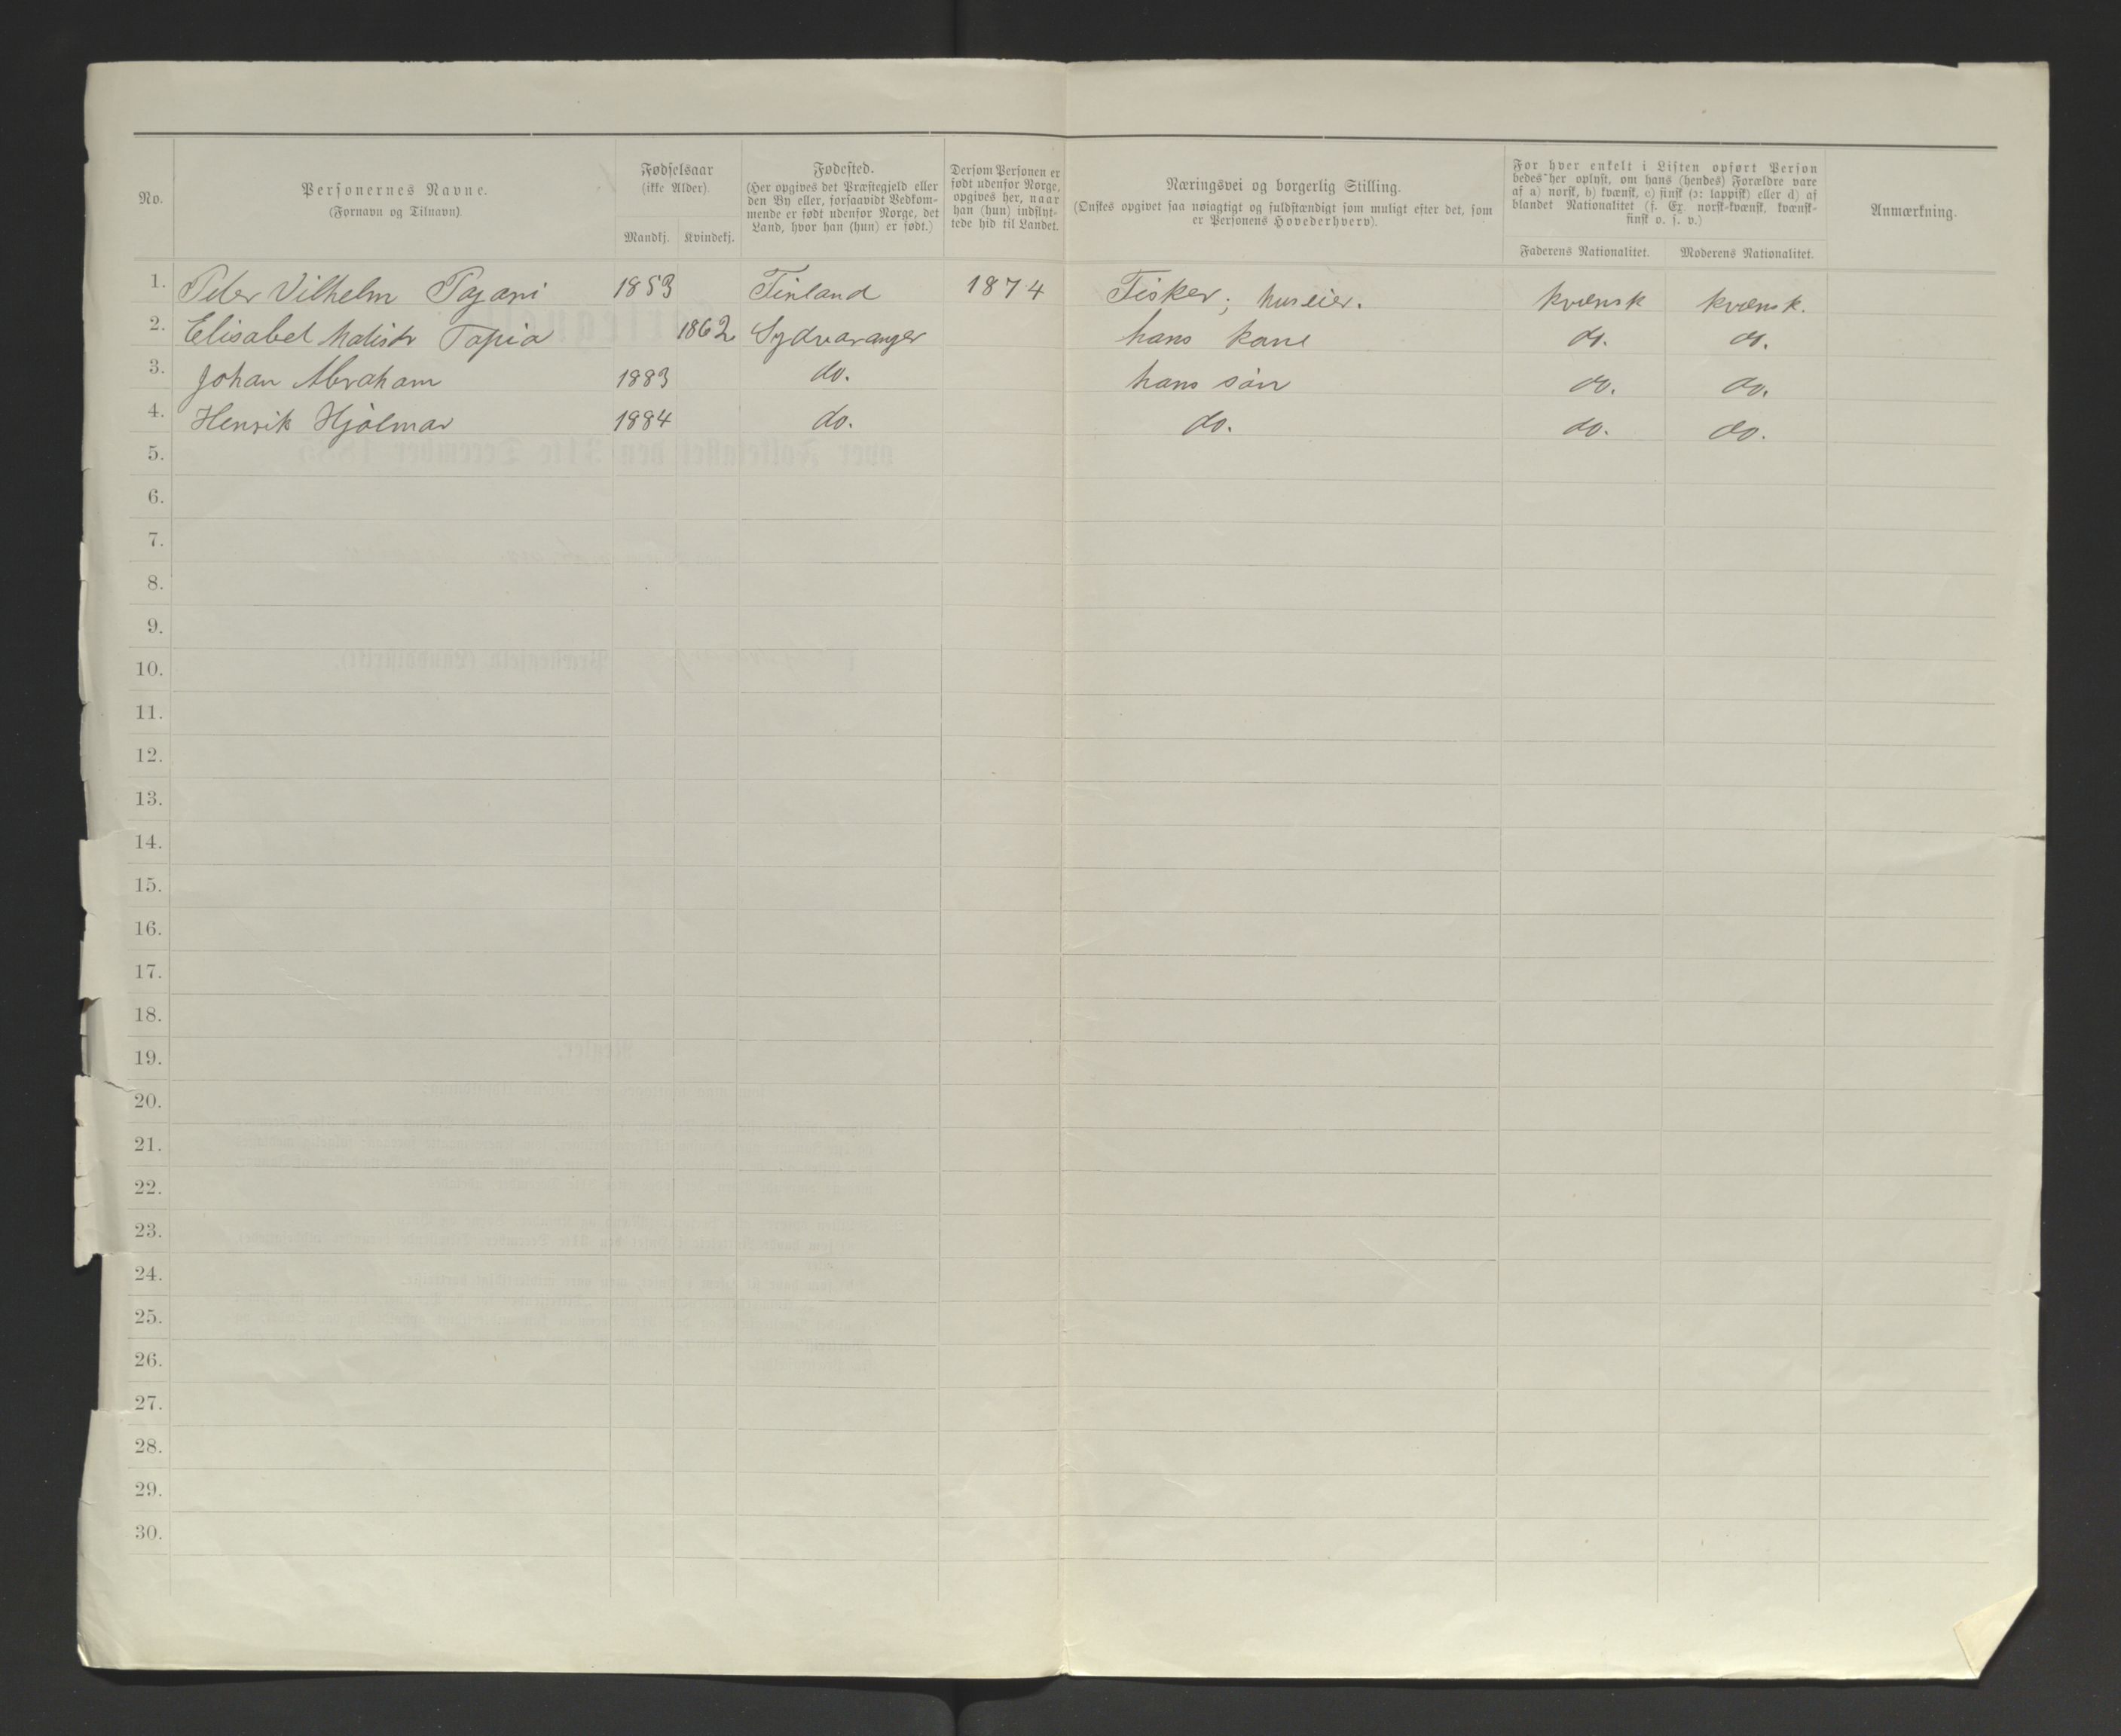 No.
Personernes Navne.
(Fornavn og Tilnavn)
Fødselsaar
(ikke Alder).
Mandkj. Kvindekj.
Fødested.
(Her opgives det Præstegjeld eller
den By eller, forsaavidt Vedkom-
mende er født udenfor Norge, det
Land, hvor han (hun) er født.)
Dersom Personen er
født udenfor Norge,
opgives her, naar
han (hun) indflyt-
tede hid til Landet.
Næringsvei og borgerlig Stilling.
(Ønskes opgivet saa nøiagtigt og fuldstændigt som muligt efter det, som
er Personens Hovederhverv).
For hver enkelt i Listen opført Person
bedes her oplyst, om hans (hendes) Forældre vare
af a) norsk, b) kvænsk, c) finsk (ɔ: lappisk) eller d) af
blandet Nationalitet (f. Ex. norsk-kvænsk, kvænsk-
finsk o. s. v.)
Faderens Nationalitet. Moderens Nationalitet.
Anmærkning.
1. Peter Vilhelm 1853 Finland 1874 Fisker; huseier. kvænsk kvænsk.
2. Elisabet 1862 Sydvaranger hans kone do. do.
3. Johan Abraham 1883 do. hans søn do. do.
4. Henrik Hjalmar 1884 do. do. do. do.
5.
6.
7.
8.
9.
10.
11.
12.
13.
14.
15.
16.
17.
18.
19.
20.
21.
22.
23.
24.
25.
26.
27.
28.
29.
30.